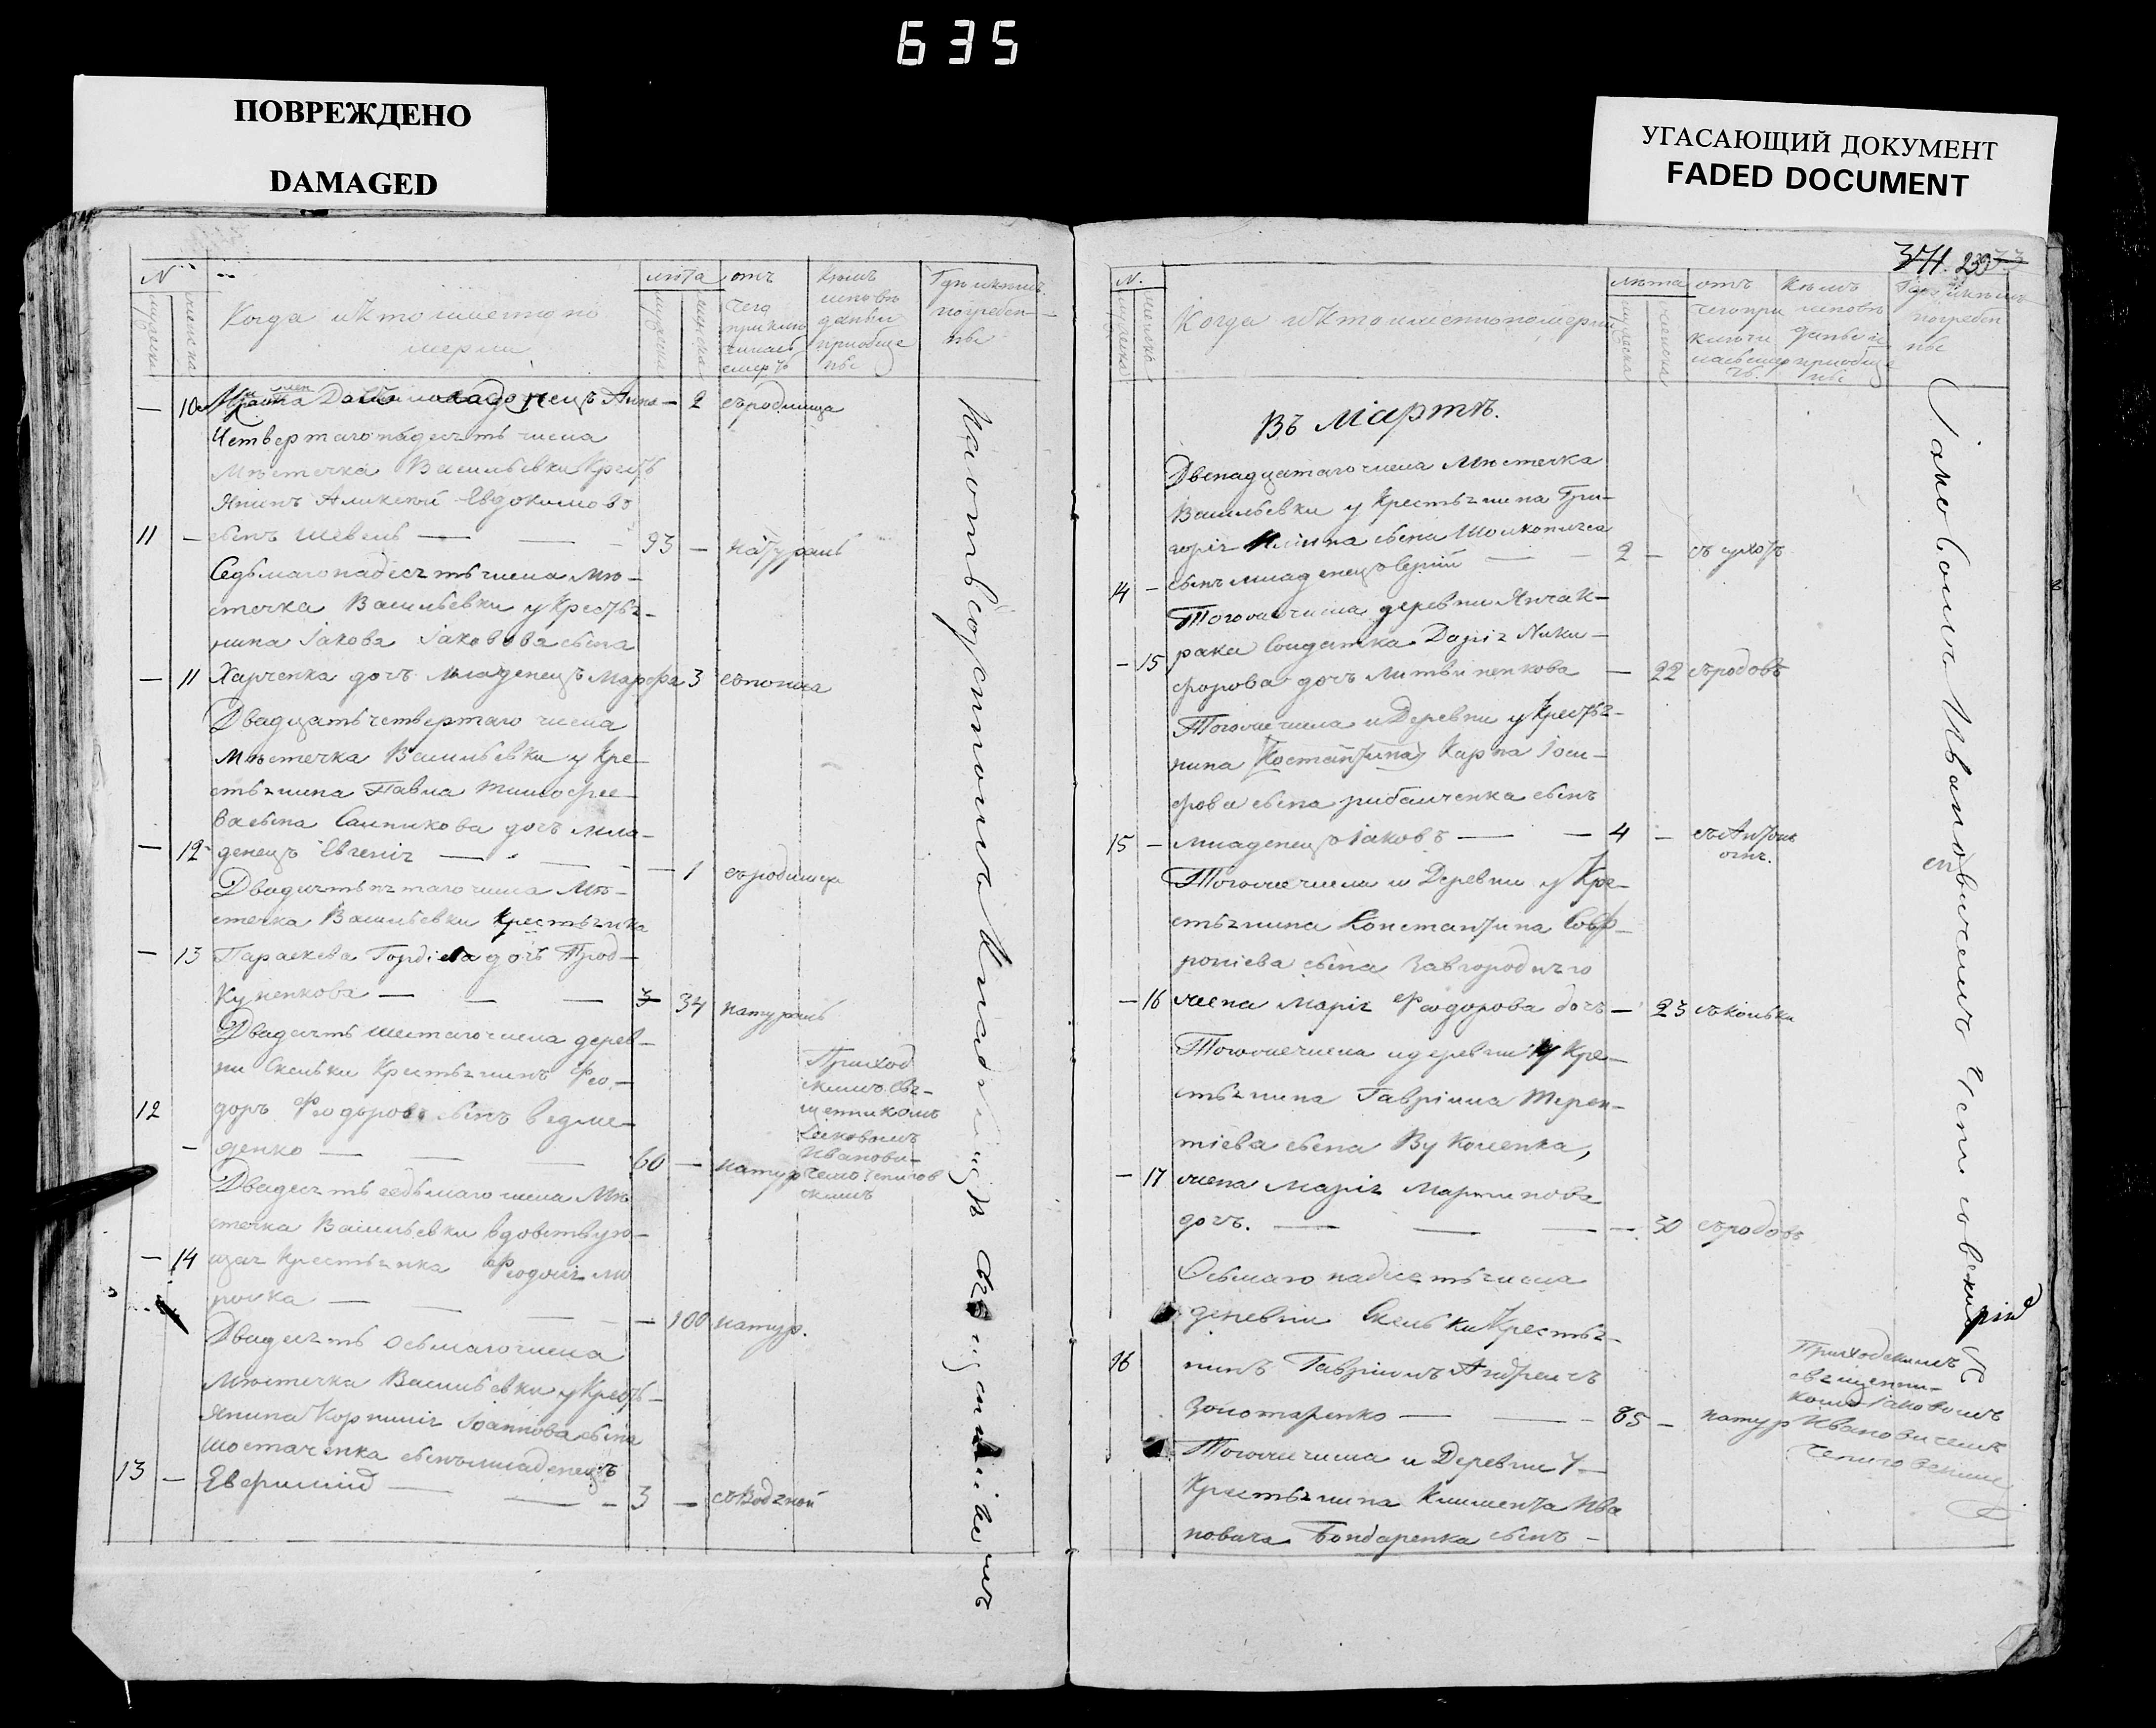 635
ПОВРЕЖДЕНО
DAMAGED
УГАСАЮЩИЙ ДОКУМЕНТ
FADED DOCUMENT
N
мужеска
женска
Когда и кто именно по
мерли
лѣта
мужеска
женска
отъ
чего
приклю
чилась
смерть
Кѣмъ
исповѣ
даны и
приобще
ны
Гдѣ и кѣмъ
погребен
ны
— 10 младенецъ Анна — 2 съродимца
Четвертагонадесять числа
Мѣстечка Васильевки Кресть
янинъ Алексѣй Евдокимовъ
11 — сынъ Шевель — — 93 — натураль
Седьмагонадесять числа Мѣ-
стечка Васильевки у Крестья-
нина Іакова Іаковова сына
— 11 Харченка дочь младенецъ Марфа 3 съпоноса
Двадцать четвертаго числа
Мѣстечка Васильевки у Кре-
стьянина Павла Тимофее-
ва сына Санникова дочь мла-
— 12 денецъ Евгенія — — — 1 съродимца
Двадцять пятаго числа Мѣ-
стечка Васильевки крестьянка
— 13 Параскева Гордіева дочь Трод-
куненкова — — — 34 натураль
Двадцять шестаго числа дерев-
ни Скельки Крестьянинъ Фео-
12 доръ Феодоровъ сынъ Ведме-
— денко — — — 60 — натур
Приход
скимъ свя-
щенникомъ
Іаковомъ
Иванови-
чемъ Чепигов
скимъ
Двадесять седьмаго числа Мѣ
стечка Васильевки вдовствую-
— 14 щая Крестьянка Феодосія Мо
роска — — — — 100 натур.
Двадесять осьмаго числа
Мѣстечка Васильевки у Кресть-
янина Корнилія Іоаннова сына
Шостаченка сынъ младенецъ
13 — Евфимій — — — 3 — съводяной
На отведенномъ кладбищѣ священникомъ
371. 239
N.
мужеска
женска
Когда и кто именно померли
лѣта
мужеска
женска
отъ
чего при
ключи
лась смер
ть.
Кѣмъ
исповѣ
даны и
приобще
ны
Гдѣ и кѣмъ
погребен
ны
Въ Мартѣ.
Двенадцатаго числа Мѣстечка
Васильевки у Крестьянина Гри-
горія сына Шолкопляса
14 — сынъ младенецъ Сергій — — 2 — съ сухотъ
Тогоже числа деревни Янчак-
— 15 рака Солдатка Дарія Ники-
форова дочь Литвиненкова — 22 съродовъ
Тогоже числа и Деревни у Крестья-
нина Карпа Іоси-
фова сына рибалченка сынъ
15 — младенецъ Іаковъ — — 4 —
Тогоже числа и Деревни у Кре-
стьянина Константина Соф-
роніева сына Завгороднего
— 16 жена Марія Феодорова дочь — 23 съкольки
Тогоже числа и деревни у Кре-
стьянина Гавріила Терен-
тіева сына Вуколенка,
— 17 жена Марія Мартинова
дочь. — — — — 30 съродовъ
Осьмаго надесять числа
деревни Скельки Крестья-
16 нинъ Гавріилъ Андреевъ
Золотаренко — — 85 — натур
Приходскимъ
священни-
комъ Іаковомъ
Ивановичемъ
Чепиговскимъ
Тогоже числа и Деревни У
Крестьянина Климента Ива
новича Бондаренка сынъ —
Іаковомъ Ивановичемъ Чепиговскимъ